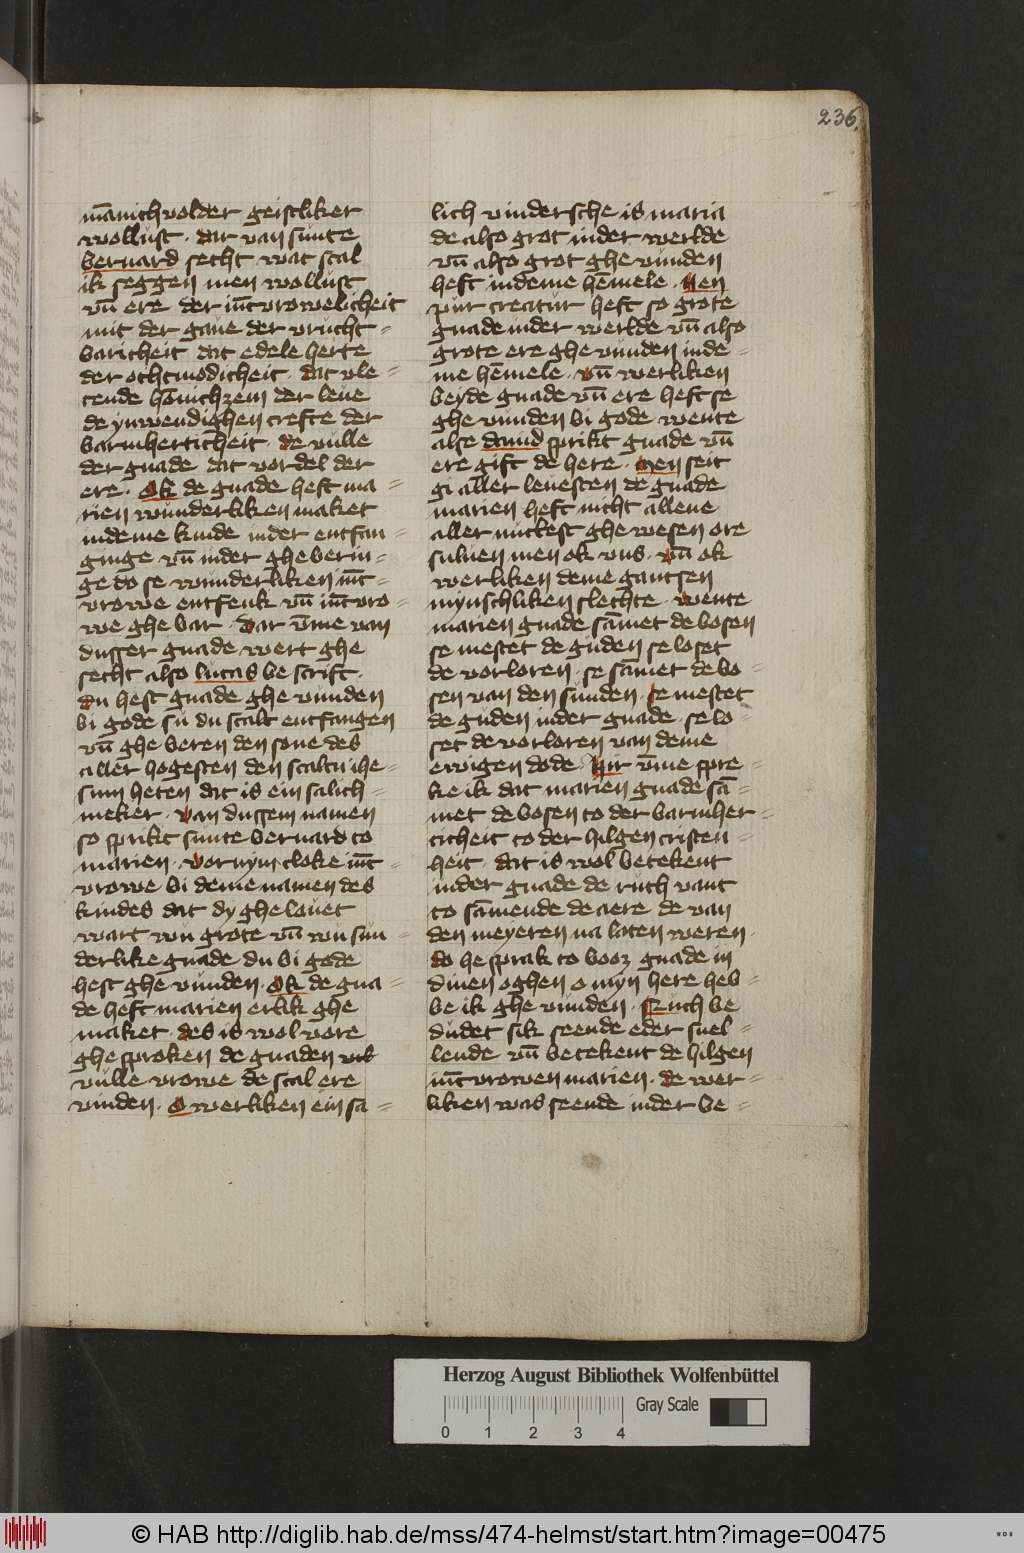 236.
mānichuolder geistliker
wollust · dar van sunte
bernard secht wat scal
ik seggen men wollust
vn̄ ere der iūcvrowelicheit
mit der gaue der vrucht-
baricheit dat edele herte
der othmodicheit · dat vle-
tende hōnichzem der leue
de ynwendighen crefte der
barmherticheit · de vulle
der gnade dat vordel der
ere · Ok de gnade heft ma-
rien wunderliken maket
in deme kinde in der entfan-
ginge vn̄ in der ghe berin-
ge do se wunderliken iūc-
vrowe entfenk vn̄ iūcvro-
we ghe bar · Dar v̄me van
dusser gnade wert ghe
secht also lucas be scrift ·
du hest gnade ghe vunden
bi gode su du scalt entfangen
vn̄ ghe beren den sone des
aller hogesten den scaltu ihe-
sum heten dat is ein salich-
meker · Van dussem namen
so sprikt sunte bernard to
marien · Vornym cloke iūc-
vrowe bi deme namen des
kindes dat dy ghe louet
wart wu grote vn̄ wu sun-
derlike gnade du bi gode
hest ghe vunden · Ok de gna-
de heft marien erlik ghe
maket des is wol vore
ghe sproken de gnaden
vulle vrowe de scal ere
vinden · O werliken ein sa-
lich vindersche is maria
de also grot in der werlde
vn̄ also grot ghe vunden
heft in deme hēmele · Nen
pur creatur heft so grote
gnade in der werlde vn̄ also
grote ere ghe vunden in de-
me hēmele · vn̄ werliken
beyde gnade vn̄ ere heft se
ghe vunden bi gode wente
alse dauid sprikt gnade vn̄
ere gift de here · Men seit
gi aller leuesten de gnade
marien heft nicht allene
aller nutlest ghe wesen ore
suluen men ok vns · vn̄ ok
werliken deme gantsen
mynschliken slechte · Wente
marien gnade sāmet de bosen
se mestet de guden se loset
de vorloren · se sāmet de bo-
sen van den sunden · se mestet
de guden in der gnade · se lo-
set de vorloren van deme
ewigen dode · Hir v̄me spre-
ke ik dat marien gnade sā-
met de bosen to der barmher-
ticheit to der hilgen cristen-
heit dat is wol betekent
in der gnade de ruth vant
to sāmende de aere de van
den meyeren na laten weren ·
do he sprak to booz gnade in
dinen oghen o myn here heb-
be ik ghe vunden · Ruth be
dudet sik seende eder snel-
lende vn̄ betekent de hilgen
iūcvrowen marien · de wer-
liken was seende in der be-
Herzog August Bibliothek Wolfenbüttel
0 1 2 3 4
Gray Scale
© HAB http://diglib.hab.de/mss/474-helmst/start.htm?image=00475